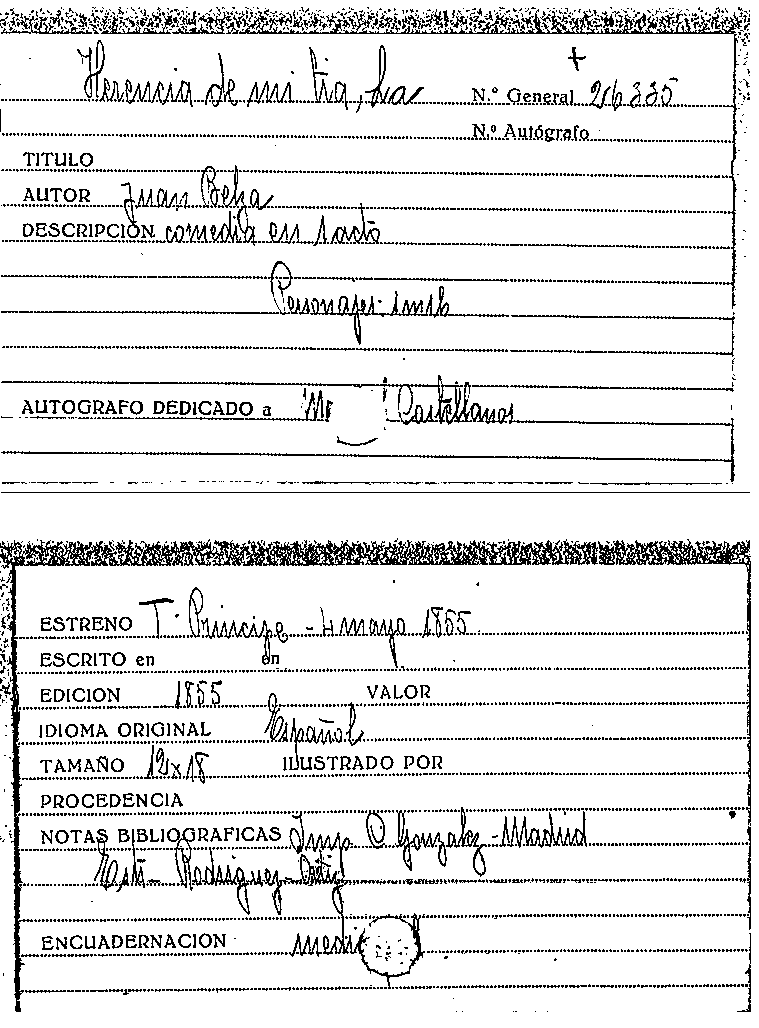 +
Herencia de mi tia, La N.º General 26335
N.º Autógrafo
TITULO
AUTOR Juan Belza
DESCRIPCIÓN comedia en 1 acto
Personajes
AUTOGRAFO DEDICADO a Castellanos
ESTRENO T. Principe - 4 mayo 1855
ESCRITO en en
EDICION 1855 VALOR
IDIOMA ORIGINAL Español
TAMAÑO 12x18 ILUSTRADO POR
PROCEDENCIA
NOTAS BIBLIOGRAFICAS Imp C Gonzalez - Madrid
Rodriguez - Ortiz
ENCUADERNACION